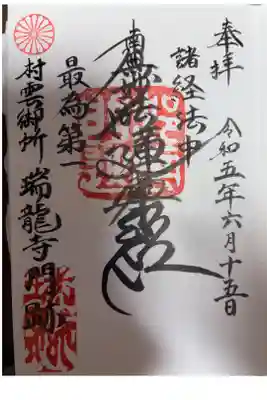 奉拝
令和五年六月十五日
諸経法中
南無妙法蓮華経
最為第一
村雲御所 瑞龍寺門跡